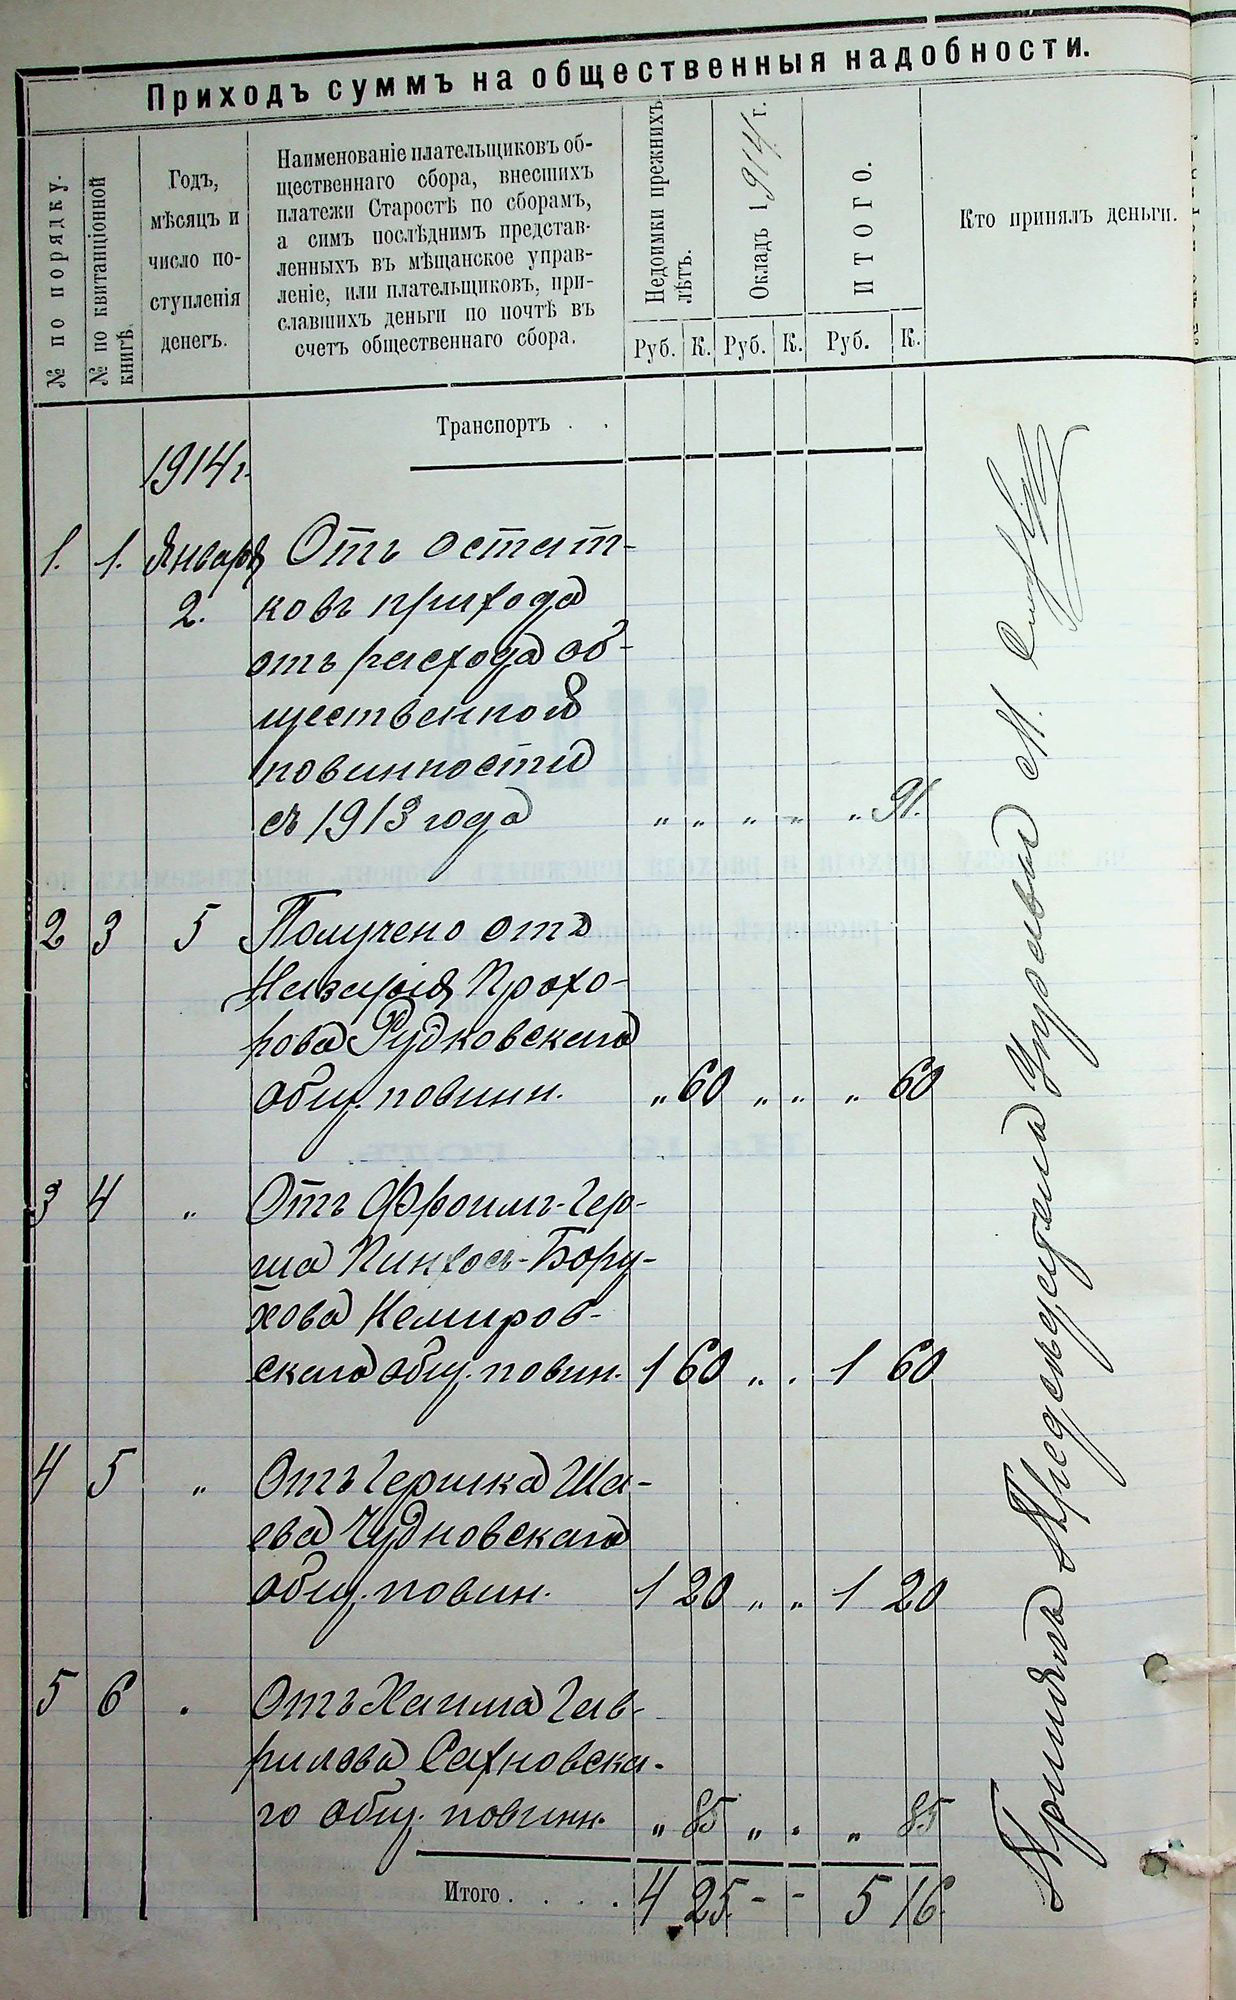 Приходъ суммъ на общественныя надобности.
№ по порядку.
№ по квитанціонной
книгѣ.
Годъ,
мѣсяцъ и
число по-
ступленія
денегъ.
Наименованіе плательщиковъ об-
щественнаго сбора, внесшихъ
платежи Старостѣ по сборамъ,
а симъ послѣднимъ представ-
ленныхъ въ мѣщанское управ-
леніе, или плательщиковъ, при-
славшихъ деньги по почтѣ въ
счетъ общественнаго сбора.
Недоимки прежнихъ
лѣтъ.
Окладъ 1914 г.
ИТОГО.
Кто принялъ деньги.
Руб. К. Руб. К. Руб. К.
Транспортъ . .
1914 г.
1. 1. Января Отъ остат-
2. ковъ прихода
отъ расхода об-
щественной
повинности
съ 1913 года „ „ „ „ „ 91.
2 3 5 Получено отъ
Назарія Прохо-
рова Рудковскаго
общ. повинн. „ 60 „ „ „ 60
3 4 „ Отъ Фроимъ-Гер-
ша Пинхосъ-Бору-
хова Немиров-
скаго общ. повин. 1 60 „ . 1 60
4 5 „ Отъ Гершка Ша-
ева Чудновскаго
общ. повин. 1 20 „ „ 1 20
5 6 . Отъ Хаима Гав-
рилова Сахновска-
го общ. повинн. „ 85 „ . „ 85
Итого . . . . 4 25. - - 5 16.
Принялъ Предсѣдатель Управы М.